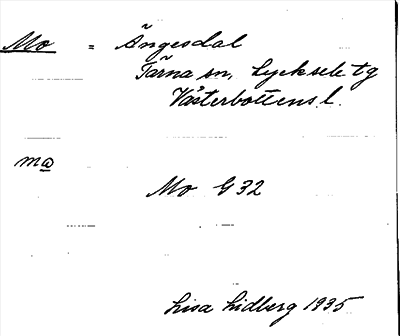 Mo = Ängesdal
Tärna sn, Lycksele tg
Västerbottens l.
mɷ
Mo G 32
Lisa Lidberg 1935